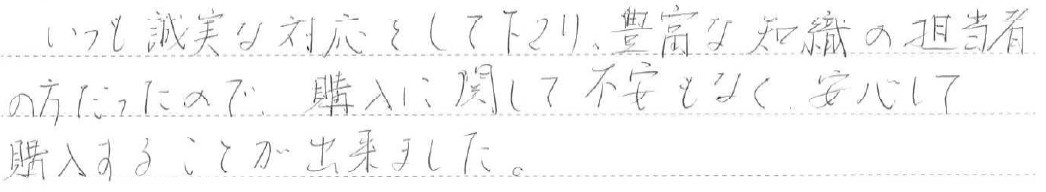 いつも誠実な対応をして下さり、豊富な知識の担当者
の方だったので、購入に関して不安もなく、安心して
購入することが出来ました。